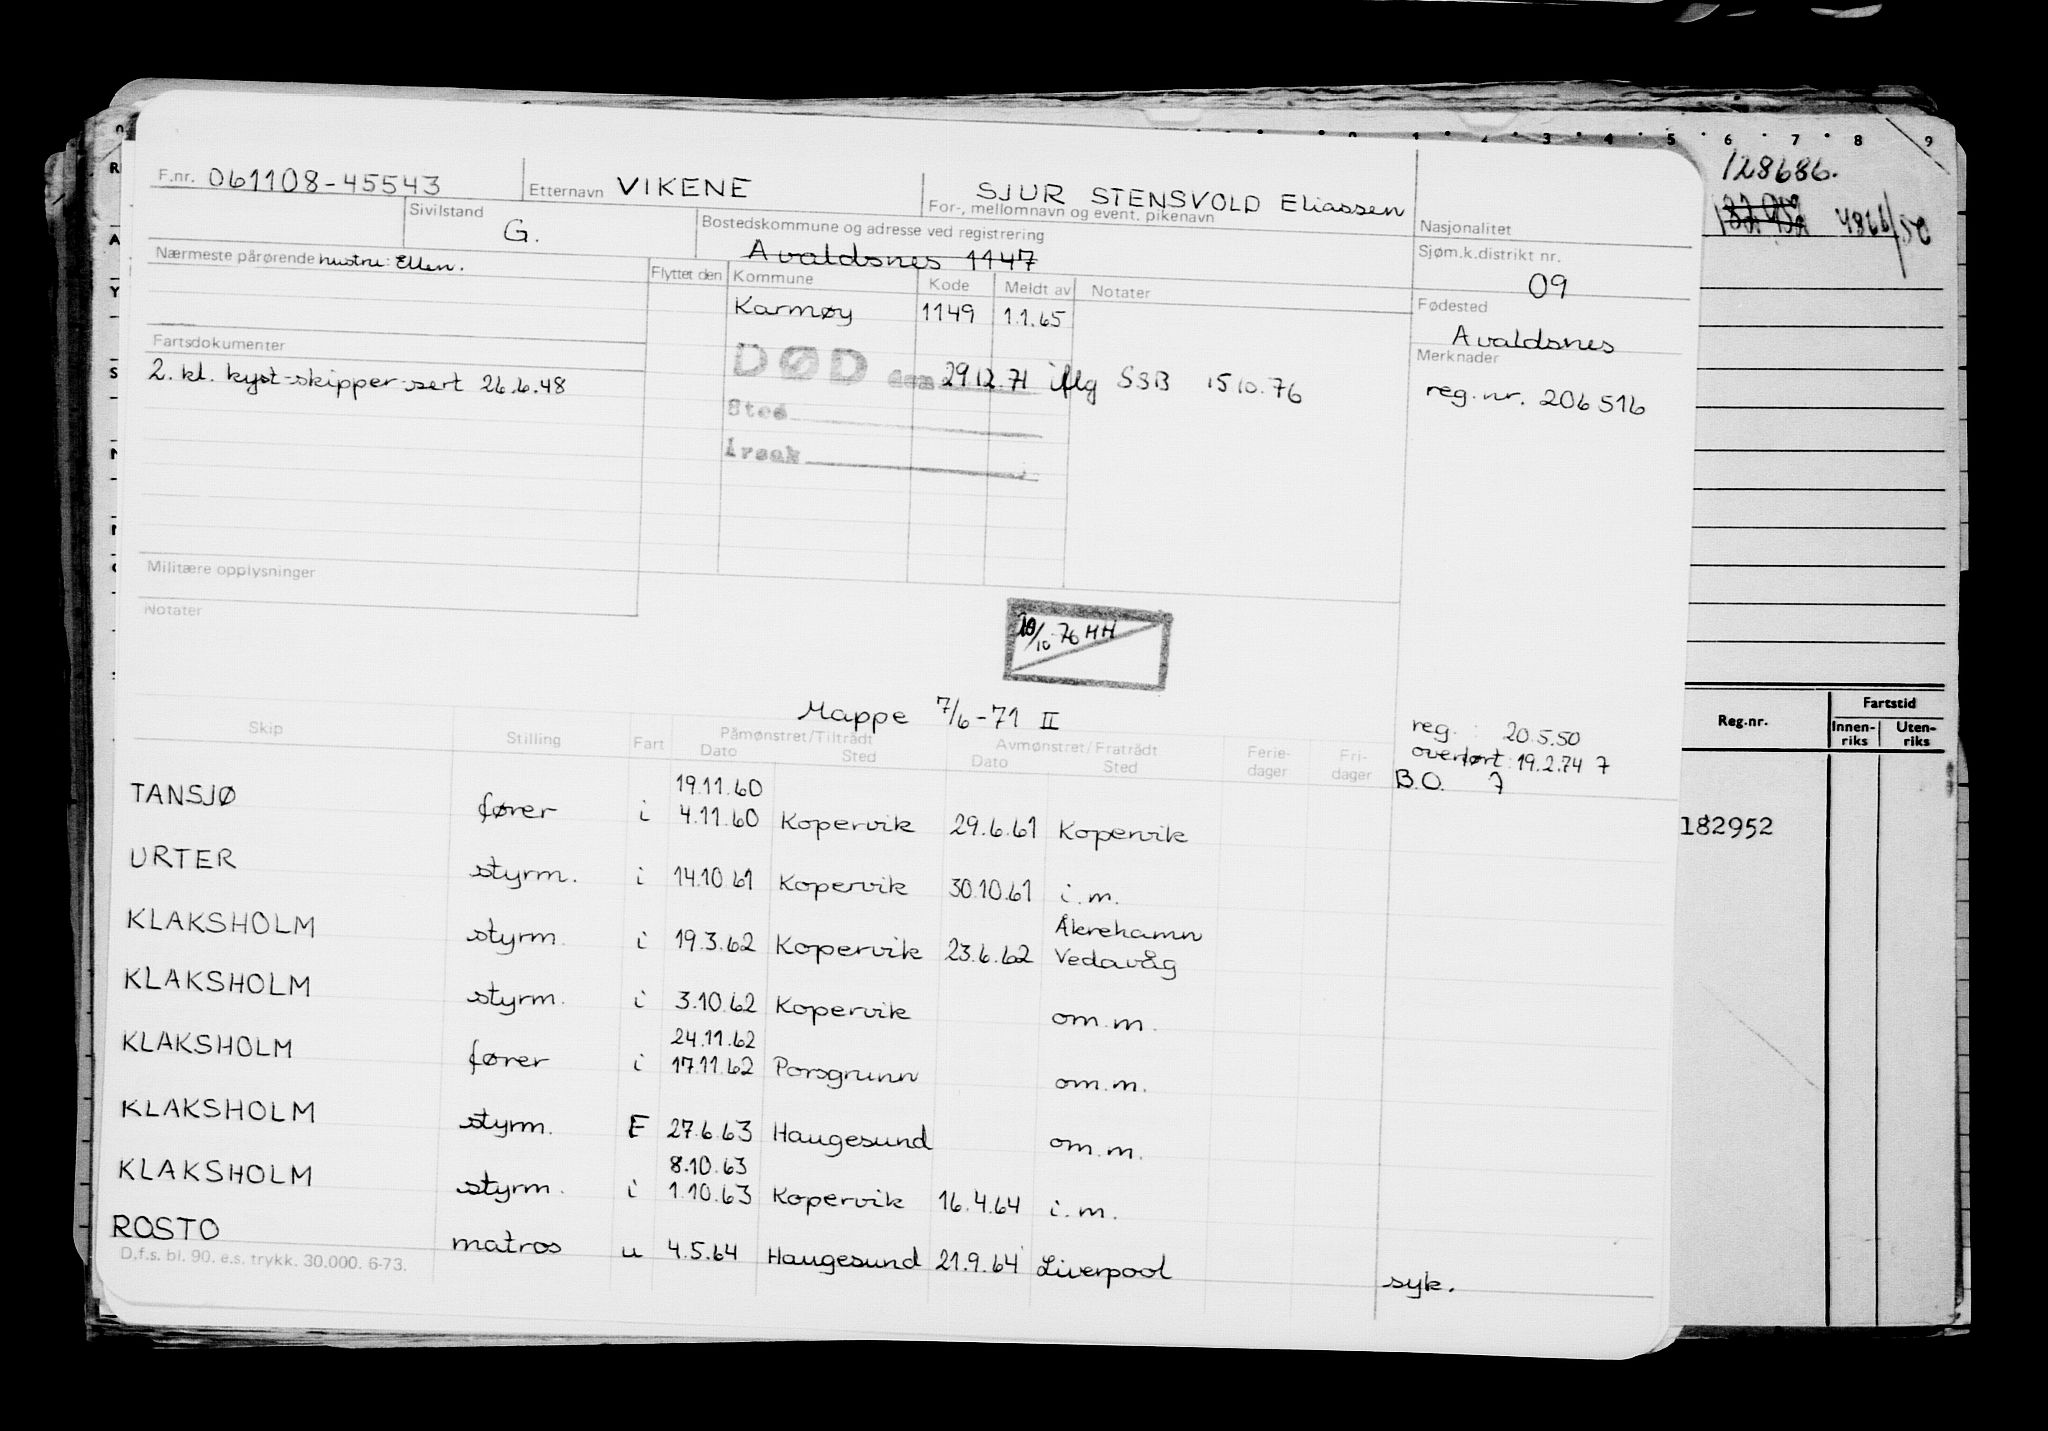 F.nr. 061108-45543 Etternavn VIKENE SJUR STENSVOLD Eliassen
For-, mellomnavn og event. pikenavn
Sivilstand G. Bostedskommune og adresse ved registrering
Avaldsnes 1147
Nasjonalitet
Sjøm.k.distrikt nr.
09
Fødested
Avaldsnes
Merknader
reg.nr. 206516
Nærmeste pårørende hustru: Ellen.
Flyttet den Kommune Kode Meldt av Notater
Karmøy 1149 1.1.65
DØD den 29.12.71 iflg SSB 15.10.76
Sted
Årsak
Fartsdokumenter
2. kl. kyst-skipper-sert 26.6.48
Militære opplysninger
Notater
/10 76 HH
Mappe 7/6-71 II
reg. : 20.5.50
overført: 19.2.74 7
B.O. 7
Skip Stilling Fart Påmønstret/Tiltrådt Avmønstret/Fratrådt Ferie- Fri-
Dato Sted Dato Sted dager dager
19.11.60
TANSJØ fører i 4.11.60 Kopervik 29.6.61 Kopervik
URTER styrm. i 14.10.61 Kopervik 30.10.61 i.m.
Åkrehamn
KLAKSHOLM styrm. i 19.3.62 Kopervik 23.6.62 Vedavåg
KLAKSHOLM styrm. i 3.10.62 Kopervik om.m.
24.11.62
KLAKSHOLM fører i 17.11.62 Porsgrunn om.m.
KLAKSHOLM styrm. E 27.6.63 Haugesund om.m.
8.10.63
KLAKSHOLM styrm. i 1.10.63 Kopervik 16.4.64 i.m.
ROSTO matros u 4.5.64 Haugesund 21.9.64 Liverpool syk.
D.f.s. bl. 90. e.s. trykk. 30.000. 6-73.
1 2 3 4 5 6 7 8 9
128686.
4866/50
Reg.nr. Fartstid
Innen- Uten-
riks riks
182952